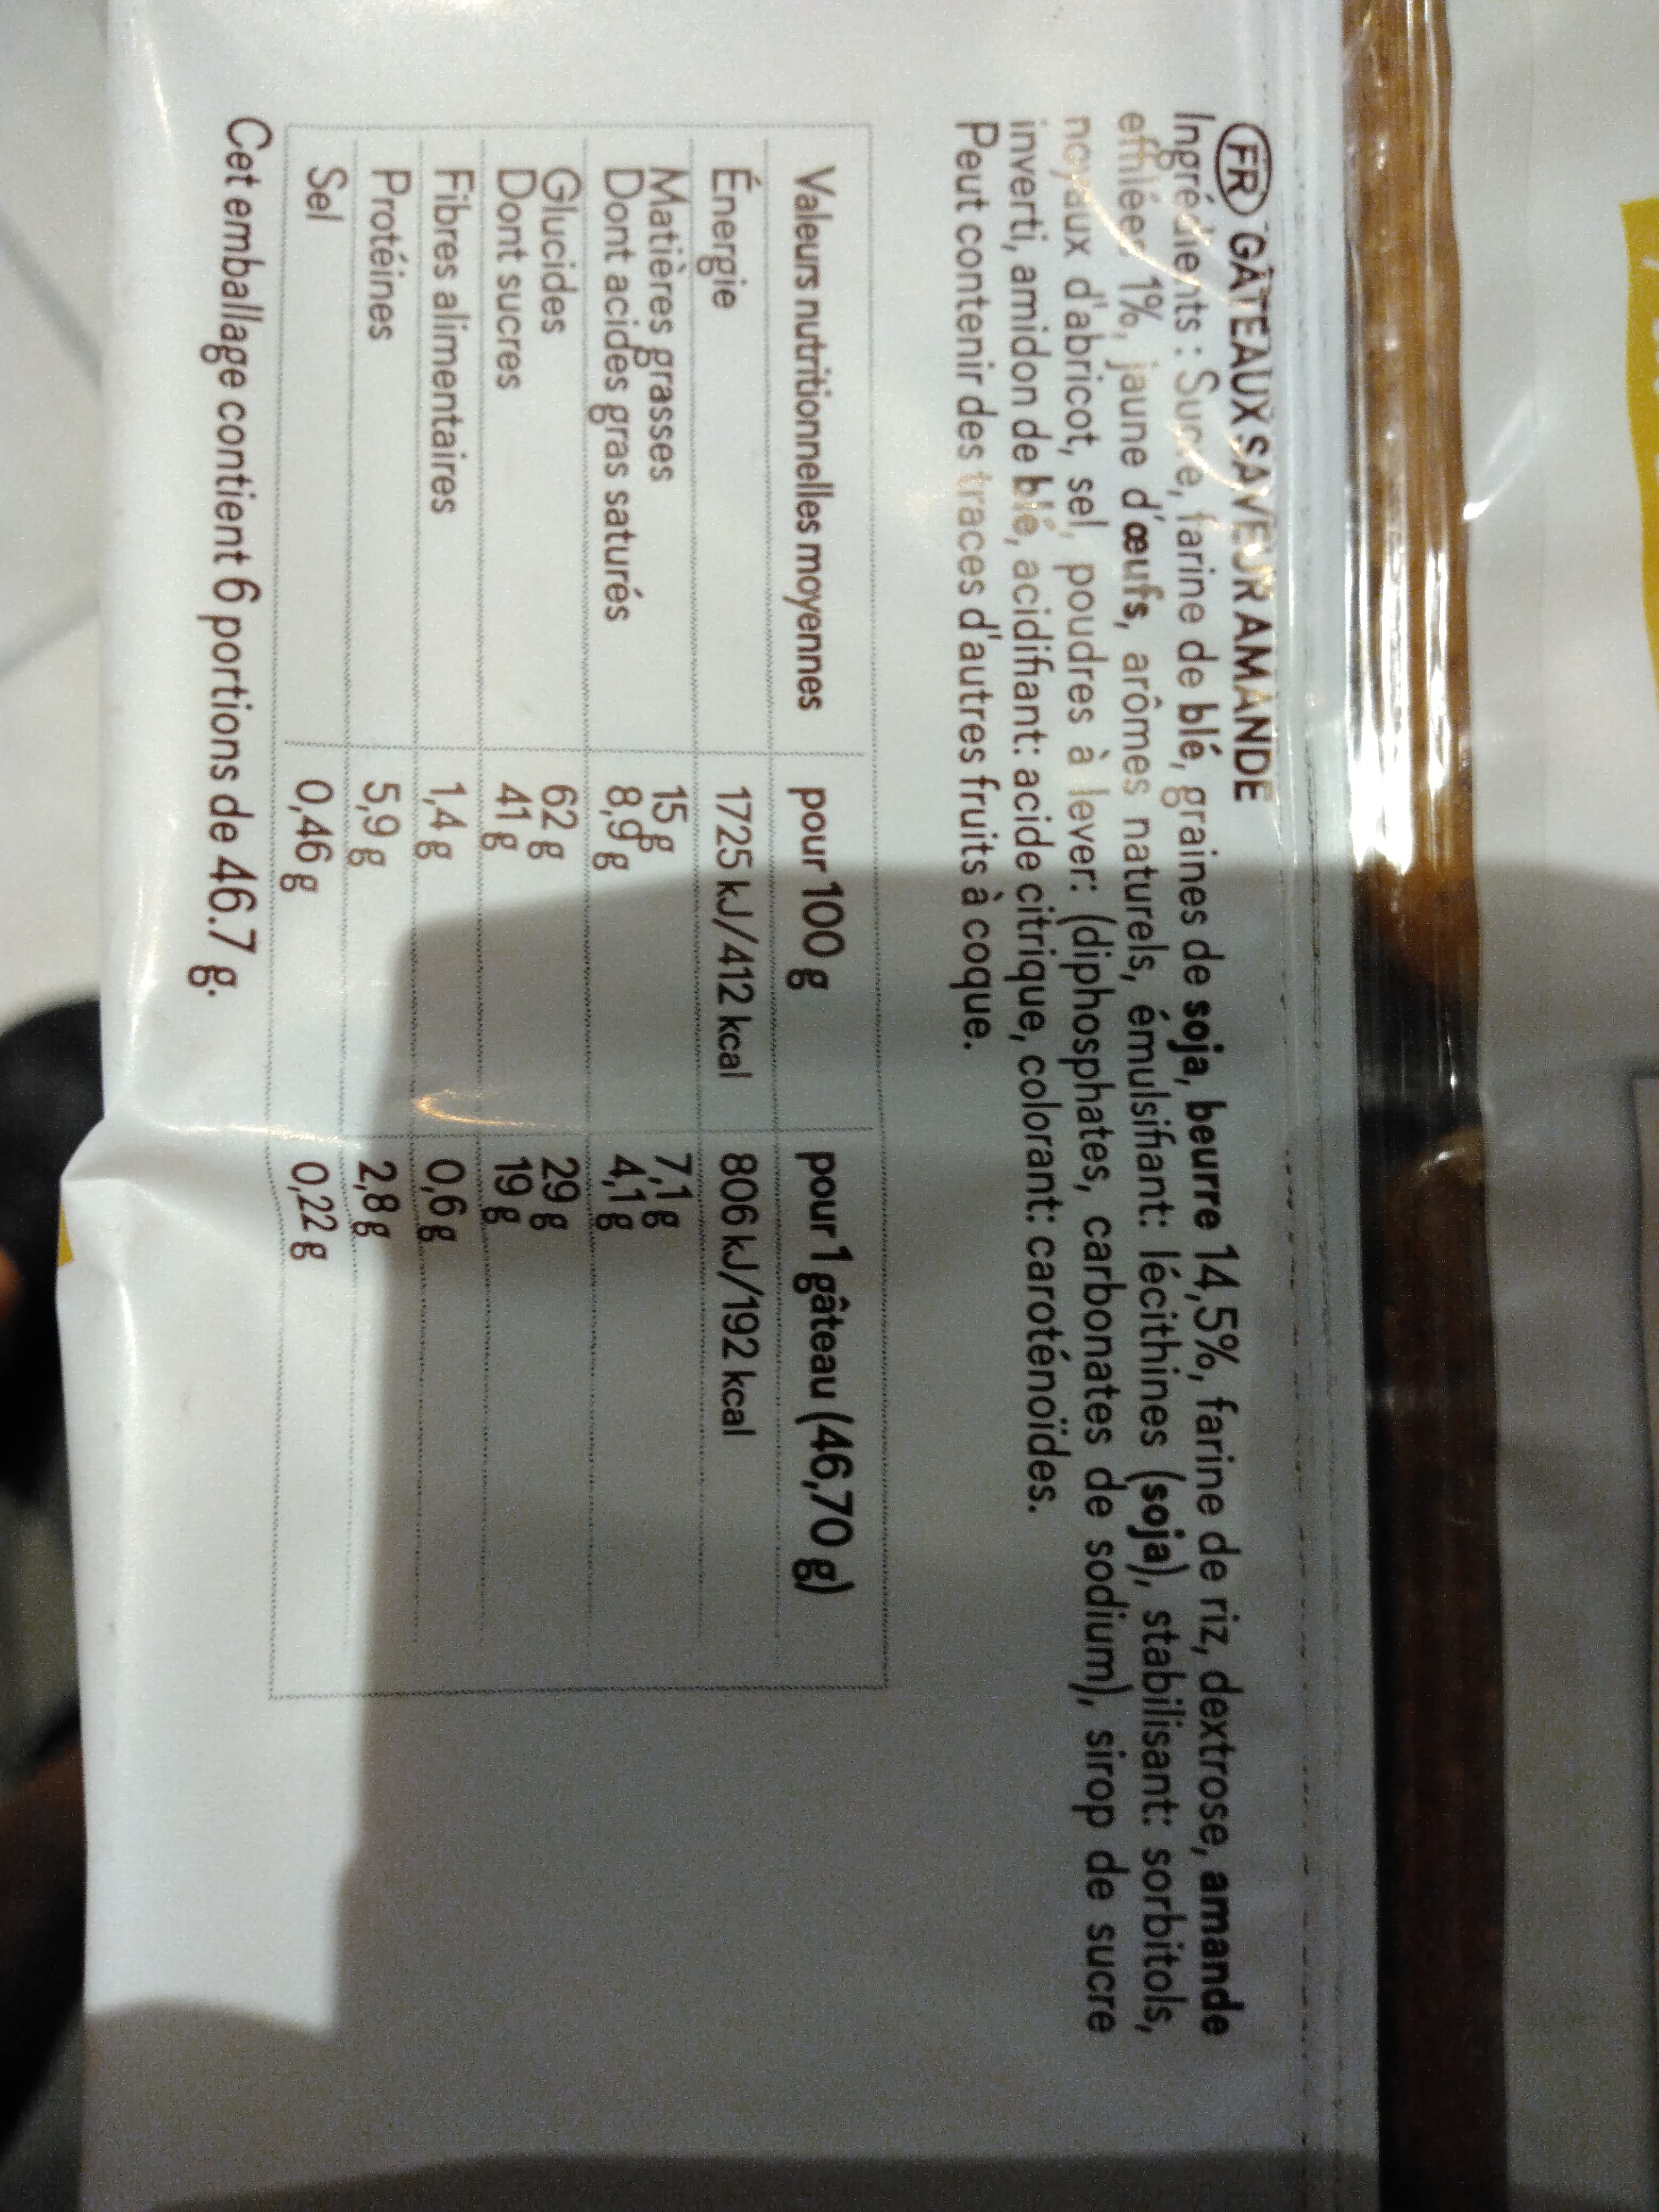 FR GÂTEAUX SAVEUR AMANDE
Ingrédients : Sucre, farine de blé, graines de soja, beurre 14,5%, farine de riz, dextrose, amande
effilées 1%, jaune d'œufs, arômes naturels, émulsifiant: lécithines (soja), stabilisant: sorbitols,
noyaux d'abricot, sel, poudres à lever: (diphosphates, carbonates de sodium), sirop de sucre
inverti, amidon de blé, acidifiant: acide citrique, colorant: caroténoïdes.
Peut contenir des traces d'autres fruits à coque.
Valeurs nutritionnelles moyennes pour 100 g pour 1 gâteau (46,70 g)
Énergie 1725 kJ/412 kcal 806 kJ/192 kcal
Matières grasses 15 g 7,1 g
Dont acides gras saturés 8,9 g 4,1 g
Glucides 62 g 29 g
Dont sucres 41 g 19 g
Fibres alimentaires 1,4 g 0,6 g
Protéines 5,9 g 2,8 g
Sel 0,46 g 0,22 g
Cet emballage contient 6 portions de 46.7 g.